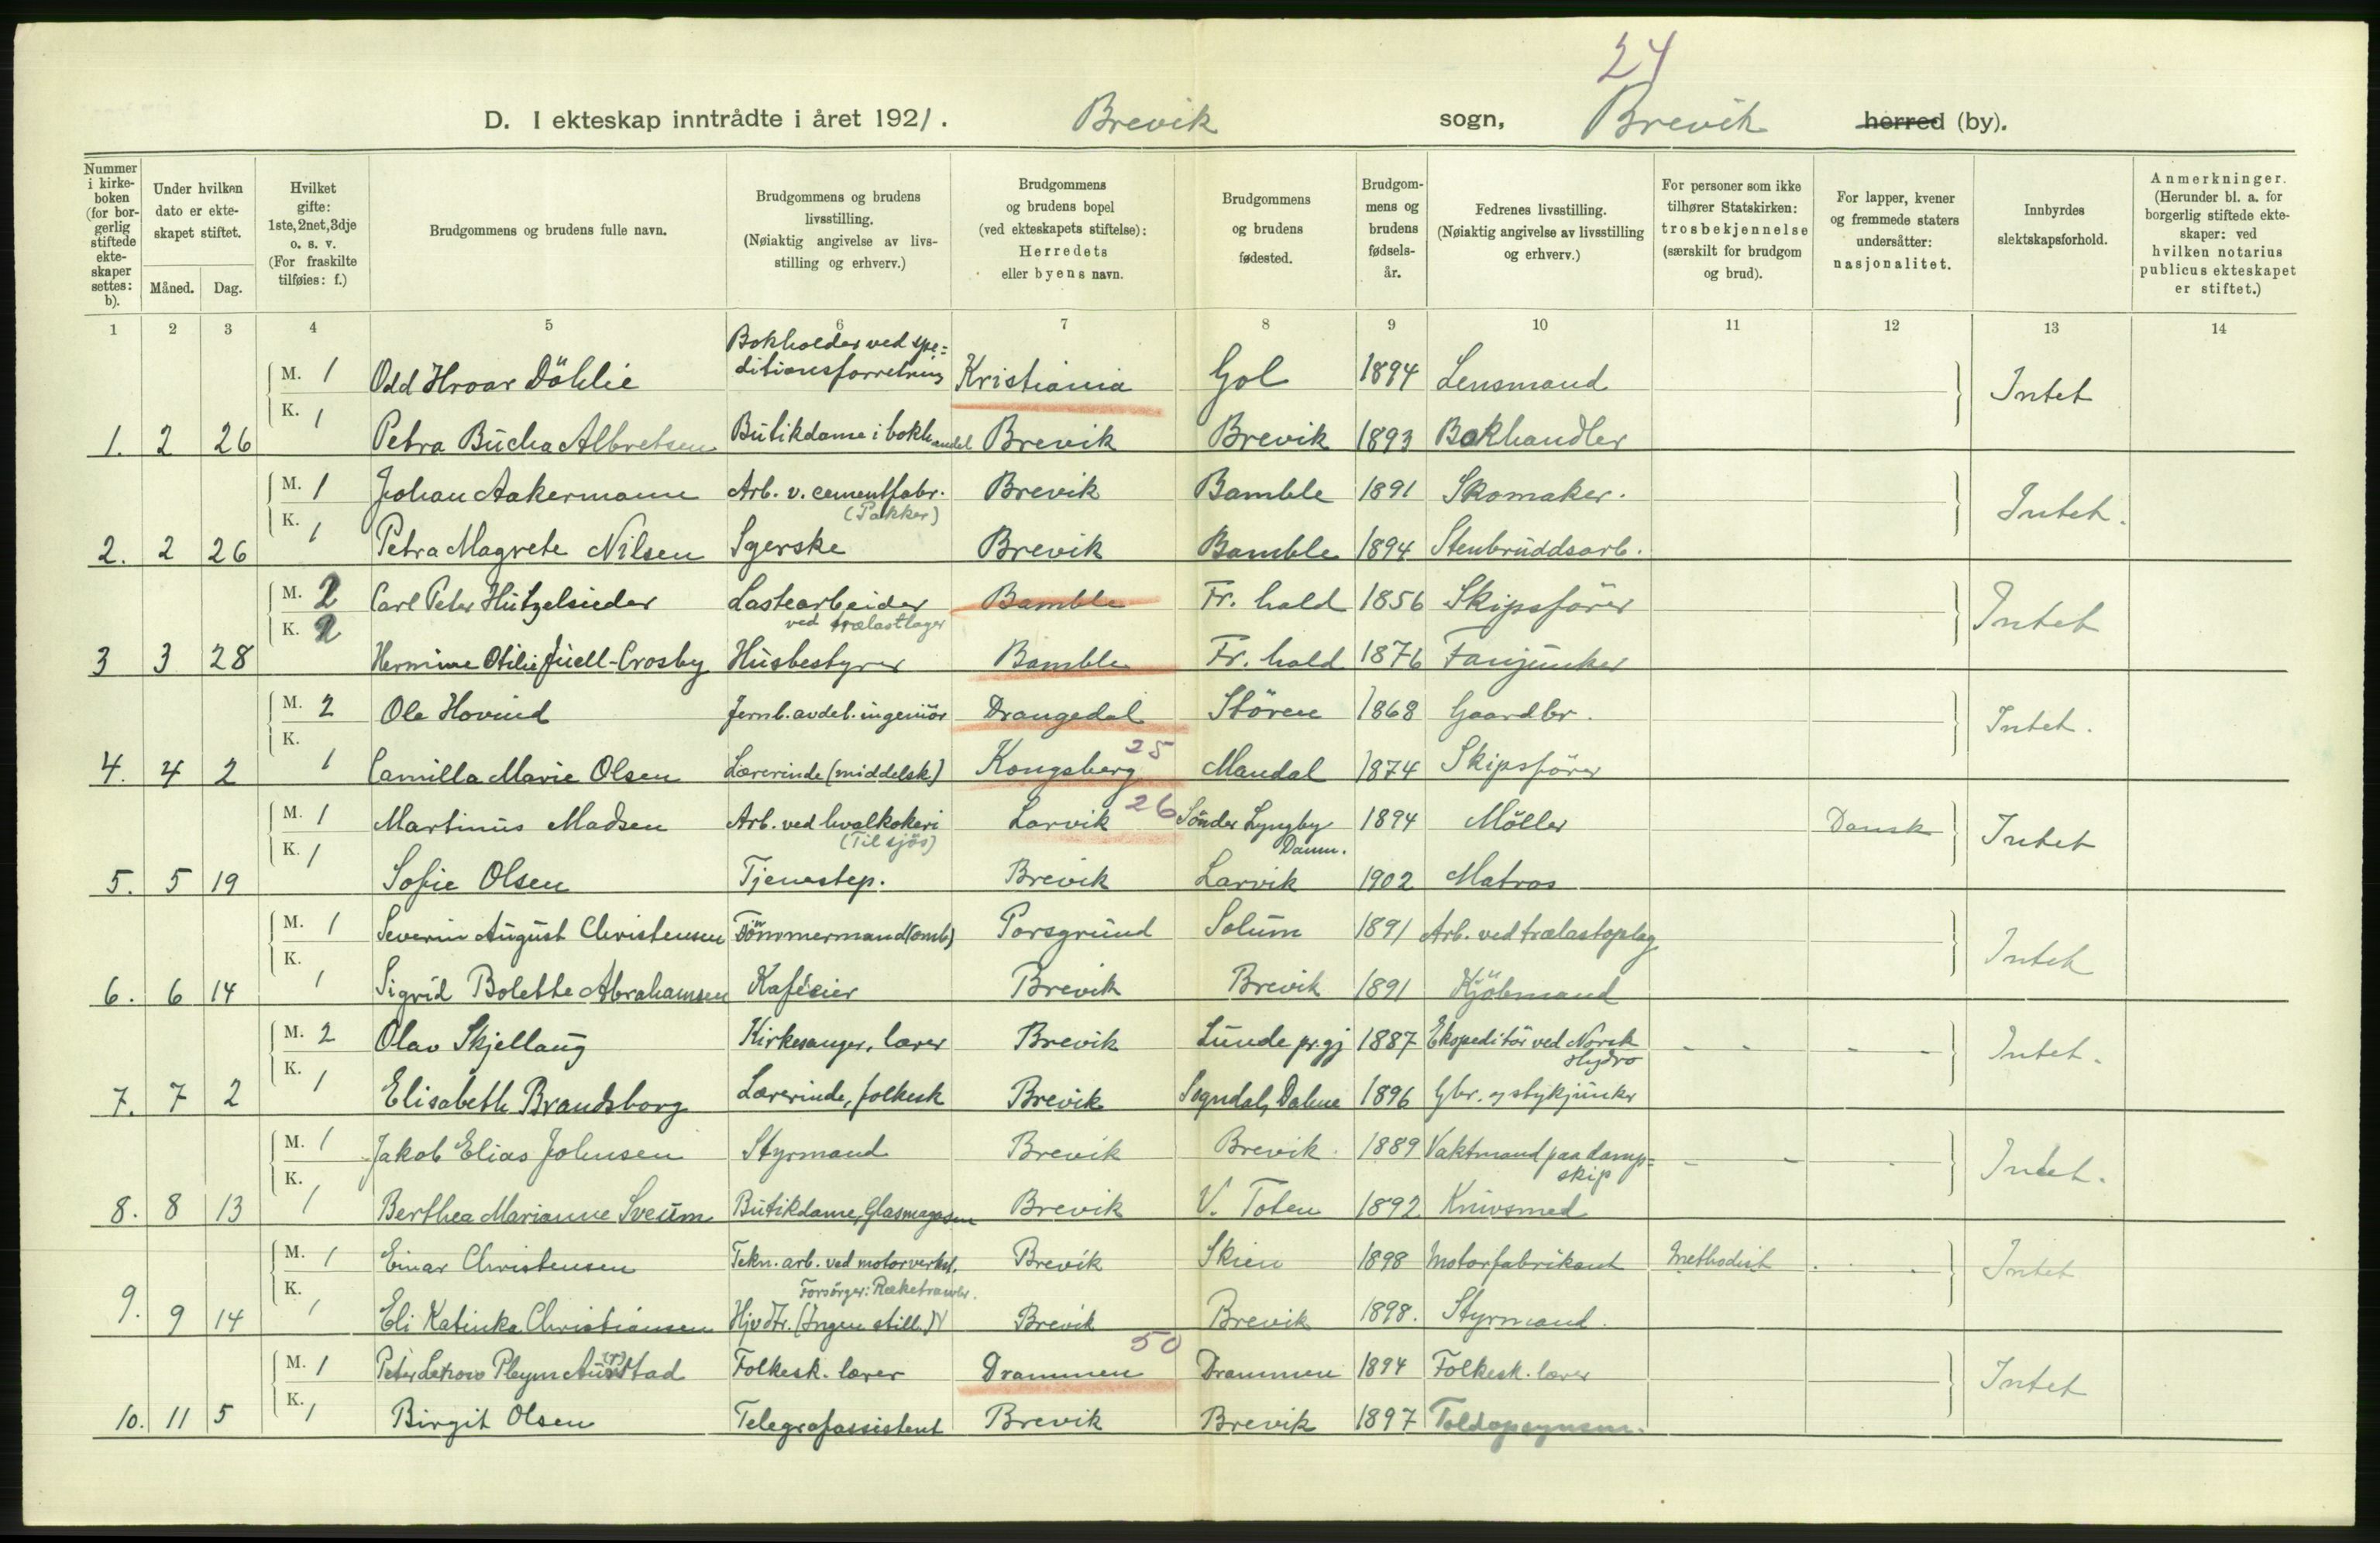 24
D. I ekteskap inntrådte i året 1921. Brevik sogn, Brevik herred (by).
Nummer i kirke-boken (for bor-gerlig stiftede ekte-skaper settes: b).
Under hvilken dato er ekte-skapet stiftet.
Måned. Dag.
Hvilket gifte: 1ste, 2net, 3dje o. s. v. (For fraskilte tilføies: f.)
Brudgommens og brudens fulle navn.
Brudgommens og brudens livsstilling. (Nøiaktig angivelse av livs-stilling og erhverv.)
Brudgommens og brudens bopel (ved ekteskapets stiftelse): Herredets eller byens navn.
Brudgommens og brudens fødested.
Brudgom-mens og brudens fødsels-år.
Fedrenes livsstilling. (Nøiaktig angivelse av livsstilling og erhverv.)
For personer som ikke tilhører Statskirken: trosbekjennelse (særskilt for brudgom og brud).
For lapper, kvener og fremmede staters undersåtter: nasjonalitet.
Innbyrdes slektskapsforhold.
Anmerkninger. (Herunder bl. a. for borgerlig stiftede ekte-skaper: ved hvilken notarius publicus ekteskapet er stiftet.)
1 2 3 4 5 6 7 8 9 10 11 12 13 14
M. 1 Odd Hroar Döhlie Bokholder ved spe=ditionsforretning Kristiania Gol 1894 Lensmand Intet
1. 2 26 K. 1 Petra Bucha Albretsen Butikdame i bokhandel Brevik Brevik 1893 Bokhandler
M. 1 Johan Aakermann Arb. v. cementfabr. (Pakker) Brevik Bamble 1891 Skomaker. Intet.
2. 2 26 K. 1 Petra Magrete Nilsen Syerske Brevik Bamble 1894 Stenbruddsarb.
M. 2 Carl Peter Hutzelsieder Lastearbeider ved trælastlager Bamble Fr. hald 1856 Skipsförer Intet
3 3 28 K. 2 Hermine Otilie Juell-Crosby Husbestyrer Bamble Fr. hald 1876 Fanejunker
M. 2 Ole Hovind Jernb. avdel. ingeniör Drangedal Stören 1868 Gaardbr. Intet.
4. 4 2 K. 1 Camilla Marie Olsen Lærerinde (middelsk) Kongsberg 25 Mandal 1874 Skipsförer
M. 1 Martinus Madsen Arb. ved hvalkokeri (Til sjös) Larvik 26 Sönder Lyngby Danm. 1894 Möller Dansk Intet
5. 5 19 K. 1 Sofie Olsen Tjenestep. Brevik Larvik 1902 Matros
M. 1 Severin August Christensen Tömmermand (omb) Porsgrund Solum 1891 Arb. ved trælastoplag Intet
6. 6 14 K. 1 Sigrid Bolette Abrahamsen Kaféeier Brevik Brevik 1891 Kjöbmand
M. 2 Olav Skjellaug Kirkesanger, lærer Brevik Lunde pr.gj 1887 Ekspeditör ved Norsk Hydro - - - - Intet.
7. 7 2 K. 1 Elisabeth Brandsborg Lærerinde, folkesk Brevik Sogndal, Dalene 1896 Gbr. og stykjunker
M. 1 Jakob Elias Johnsen Styrmand Brevik Brevik. 1889 Vaktmand paa damp=skip - - - Intet.
8. 8 13 K. 1 Berthea Marianne Sveum Butikdame, Glasmagasin Brevik V. Toten 1892 Knivsmed
M. 1 Einar Christensen Tekn. arb. ved motorverkst. Brevik Skien 1898 Motorfabrikant Methodist Intet
9. 9 14 K. 1 Eli Katinka Christiansen Forsörger: Hjv. dtr. (Ingen still.) Brevik Brevik 1898. Styrmand.
M. 1 Peter Pleym Folkesk. lærer Drammen 50 Drammen 1894 Folkesk. lærer Intet
10. 11 5 K. 1 Birgit Olsen Telegrafassistent Brevik Brevik 1897 Toldopsynsm.